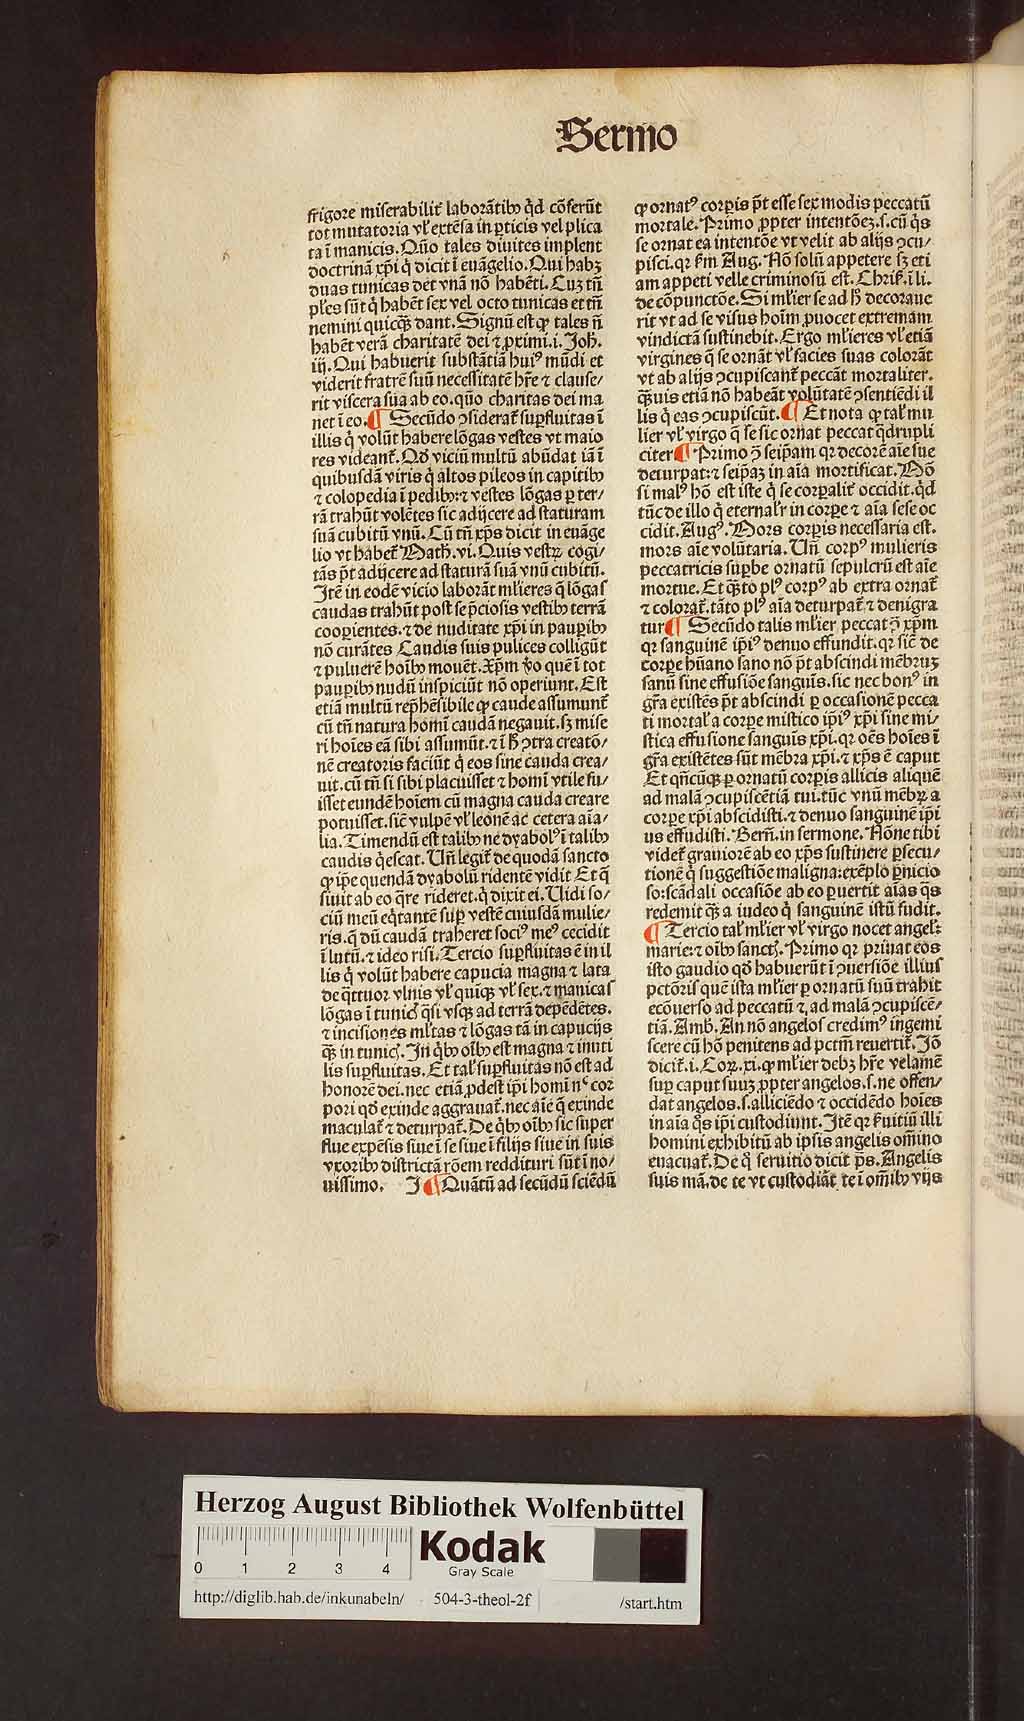 Sermo
frigore miserabilit̃ laborãtibꝫ q̇d cõferũt
tot mutatoria vl̓ extẽsa in ꝑticis vel plica
ta ĩ manicis. Qũo tales diuites implent
doctrinã xp̃i q̇ dicit ĩ euãgelio. Qui habꝫ
duas tunicas det vnã nõ habẽti. Cuꝫ tñ
pl̓es sũt q̇ habẽt sex vel octo tunicas et tñ
nemini quicq̃ꝫ dant. Signũ est ꝙ tales ñ
habẽt verã charitatẽ dei ⁊ ꝓximi. i. Joh̃.
iij. Qui habuerit substãtiã huiꝰ mũdi et
viderit fratrẽ suũ necessitatẽ hr̃e ⁊ clause/
rit viscera sua ab eo. quõ charitas dei ma
net ĩ eo. ¶ Secũdo ɔsiderat̃ suꝑfluitas ĩ
illis q̇ volũt habere lõgas vestes vt maio
res videant̃. Qď viciũ multũ abũdat iã ĩ
quibusdã viris q̇ altos pileos in capitibꝫ
⁊ colopedia ĩ pedibꝫ: ⁊ vestes lõgas ꝑ ter/
rã trahũt volẽtes sic adijcere ad staturam
suã cubitũ vnũ. Cũ tñ xp̃s dicit in euãge
lio vt habet̃ Math̃. vi. Quis vestrꝝ cogi/
tãs pt̃ adijcere ad staturã suã vnũ cubitũ.
Jtẽ in eodẽ vicio laborãt ml̓ieres q̇ lõgas
caudas trahũt post se p̃ciosis vestibꝫ terrã
cooꝑientes. ⁊ de nuditate xp̃i in pauꝑibꝫ
nõ curãtes Caudis suis pulices colligũt
⁊ puluerẽ hoĩbꝫ mouẽt. Xp̃m ṽo quẽ ĩ tot
pauꝑibꝫ nudũ inspiciũt nõ operiunt. Est
etiã multũ rep̃hẽsibile ꝙ caude assumunt̃
cũ tñ natura homĩ caudã negauit. sꝫ mise
ri hoĩes eã sibi assumũt. ⁊ ĩ h̃ ɔtra creatõ/
nẽ creatoris faciũt q̇ eos sine cauda crea/
uit. cũ tñ si sibi placuisset ⁊ homĩ vtile fu/
isset eundẽ hoĩem cũ magna cauda creare
potuisset. sic̃ vulpẽ vl̓ leonẽ ac cetera aĩa/
lia. Timendũ est talibꝫ ne dyabolꝰ ĩ talibꝫ
caudis q̇escat. Uñ legit̃ de quodã sancto
ꝙ ip̃e quendã dyabolũ ridentẽ vidit Et q̃
siuit ab eo q̃re rideret. q̇ dixit ei. Uidi so/
ciũ meũ eq̇tantẽ suꝑ vestẽ cuiusdã mulie/
ris. q̃ dũ caudã traheret sociꝰ meꝰ cecidit
ĩ lutũ. ⁊ ideo risi. Tercio suꝑfluitas ẽ in il
lis q̇ volũt habere capucia magna ⁊ lata
de q̃ttuor vlnis vl̓ quĩqꝫ vl̓ sex. ⁊ manicas
lõgas ĩ tunic̃ q̃si vsqꝫ ad terrã depẽdẽtes.
⁊ incisiones ml̓tas ⁊ lõgas tã in capucijs
q̃ꝫ in tunic̃. Jn q̇bꝫ oĩbꝫ est magna ⁊ inuti
lis suꝑfluitas. Et tal̓ suꝑfluitas nõ est ad
honorẽ dei. nec etiã ꝓdest ip̃i homĩ nͨ cor
pori qď exinde aggrauat̃. nec aĩe q̃ exinde
maculat̃ ⁊ deturpat̃. De q̇bꝫ oĩbꝫ sic super
flue expẽsis siue ĩ se siue ĩ filijs siue in suis
vxoribꝫ districtã rõem reddituri sũt ĩ no/
uissimo. J ¶ Quãtũ ad secũdũ sciẽdũ
ꝙ ornatꝰ corꝑis pt̃ esse sex modis peccatũ
mortale. Primo ꝓpter intentõeꝫ. s. cũ q̇s
se ornat ea intentõe vt velit ab alijs ɔcu/
pisci. qꝛ km̃ Aug. Nõ solũ appetere sꝫ eti
am appeti velle criminosũ est. Chriẜ. ĩ li.
de cõpunctõe. Si ml̓ier se ad h̃ decoraue
rit vt ad se visus hoĩm ꝓuocet extremam
vindictã sustinebit. Ergo ml̓ieres vl̓ etiã
virgines q̃ se ornãt vl̓ facies suas colorãt
vt ab alijs ɔcupiscant̃ peccãt mortaliter.
q̃ꝫuis etiã nõ habeãt volũtatẽ ɔsentiẽdi il
lis q̇ eas ɔcupiscũt. ¶ Et nota ꝙ tal̓ mu
lier vl̓ virgo q̃ se sic ornat peccat q̃drupli
citer ¶ Primo ɔ̃ seip̃am qꝛ decorẽ aĩe sue
deturpat: ⁊ seip̃aꝫ in aĩa mortificat. Nõ
si malꝰ hõ est iste q̇ se corꝑalit̃ occidit. q̇d
tũc de illo q̇ eternal̓r in corꝑe ⁊ aĩa sese oc
cidit. Augꝰ. Mors corꝑis necessaria est.
mors aĩe volũtaria. Uñ corpꝰ mulieris
peccatricis suꝑbe ornatũ sepulcrũ est aĩe
mortue. Et q̃ꝫto plꝰ corpꝰ ab extra ornat̃
⁊ colorat̃. tãto plꝰ aĩa deturpat̃ ⁊ denigra
tur ¶ Secũdo talis ml̓ier peccat ɔ̃ xp̃m
qꝛ sanguinẽ ip̃iꝰ denuo effundit. qꝛ sic̃ de
corꝑe hũano sano nõ pt̃ abscindi mẽbruꝫ
sanũ sine effusiõe sanguĩs. sic nec bonꝰ in
gr̃a existẽs pt̃ abscindi ꝑ occasionẽ pecca
ti mortal̓ a corꝑe mistico ip̃iꝰ xp̃i sine mi/
stica effusione sanguĩs xp̃i. qꝛ oẽs hoĩes ĩ
gr̃a existẽtes sũt mẽbra xp̃i. ⁊ xp̃s ẽ caput
Et qñcũqꝫ ꝑ ornatũ corꝑis allicis aliquẽ
ad malã ɔcupiscẽtiã tui. tũc vnũ mẽbꝝ a
corꝑe xp̃i abscidisti. ⁊ denuo sanguinẽ ip̃i
us effudisti. Berñ. in sermone. Nõne tibi
videt̃ grauiorẽ ab eo xp̃s sustinere ꝑsecu/
tionẽ q̇ suggestiõe maligna: exẽplo ꝑnicio
so: scãdali occasiõe ab eo ꝑuertit aĩas q̃s
redemit q̃ꝫ a iudeo q̇ sanguinẽ istũ fudit.
¶ Tercio tal̓ ml̓ier vl̓ virgo nocet angel̓:
marie: ⁊ oĩbꝫ sanct̃. Primo qꝛ priuat eos
isto gaudio qď habuerũt ĩ ɔuersiõe illius
pctõris quẽ ista ml̓ier ꝑ ornatũ suũ trahit
ecõuerso ad peccatũ ⁊ ad malã ɔcupiscẽ/
tiã. Amb. An nõ angelos credimꝰ ingemi
scere cũ hõ penitens ad pctm̃ reuertit̃. Jõ
dicit̃. i. Coꝝ. xi. ꝙ ml̓ier debꝫ hr̃e velamẽ
suꝑ caput suuꝫ ꝓpter angelos. s. ne offen/
dat angelos. s. alliciẽdo ⁊ occidẽdo hoĩes
in aĩa q̇s ip̃i custodiunt. Jtẽ qꝛ ẜuitiũ illi
homini exhibitũ ab ipsis angelis om̃ino
euacuat̃. De q̇ seruitio dicit p̃s. Angelis
suis mã. de te vt custodiãt te ĩ om̃ibꝫ vijs
Herzog August Bibliothek Wolfenbüttel
0 1 2 3 4
Kodak
Gray Scale
http://diglib.hab.de/inkunabeln/ 504-3-theol-2f /start.htm